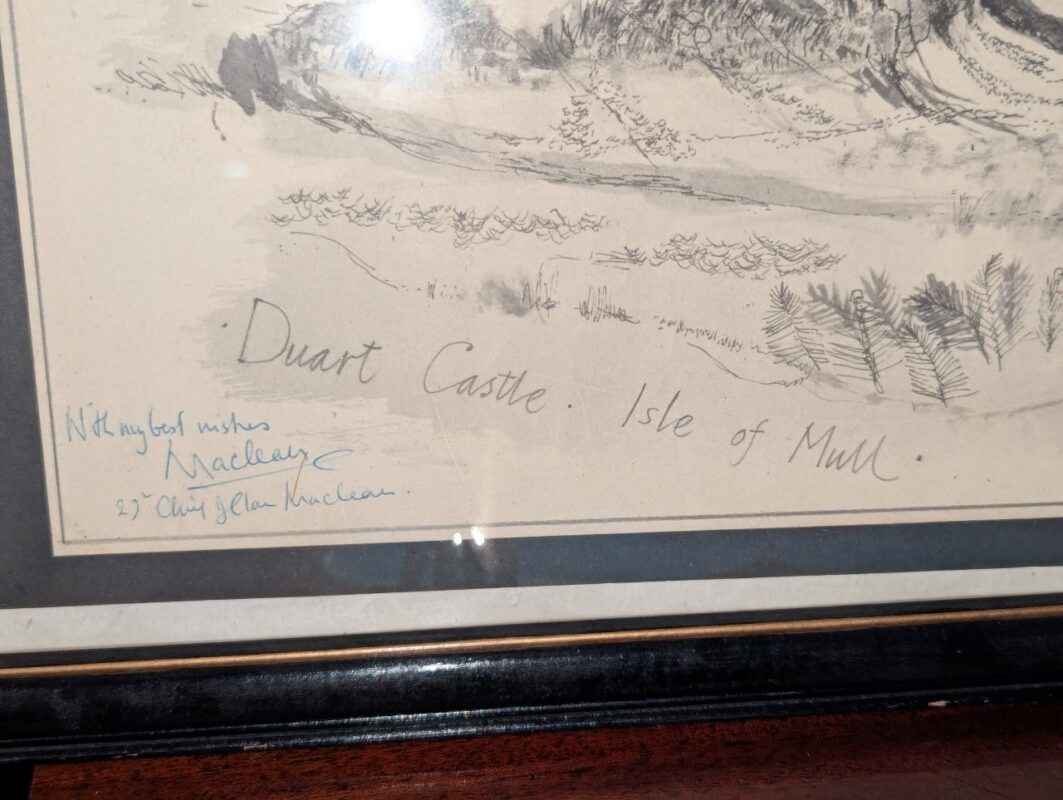 Duart Castle. Isle of Mull.
With my best wishes
Maclean
27th Chief of Clan Maclean.